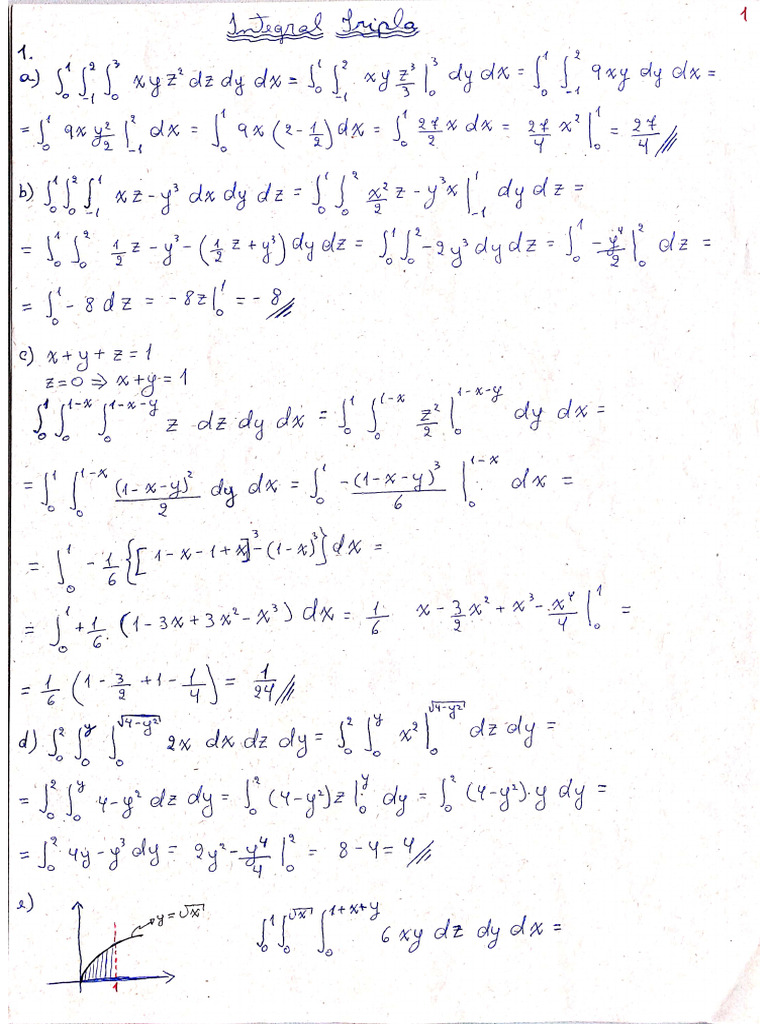 Integral Tripla
1
1.
a) ∫₀¹ ∫₋₁² ∫₀³ xyz² dz dy dx = ∫₀¹ ∫₋₁² xy z³/3 |₀³ dy dx = ∫₀¹ ∫₋₁² 9xy dy dx =
= ∫₀¹ 9x y²/2 |₋₁² dx = ∫₀¹ 9x (2 - 1/2) dx = ∫₀¹ 27/2 x dx = 27/4 x² |₀¹ = 27/4 //
b) ∫₀¹ ∫₀² ∫₋₁¹ xz - y³ dx dy dz = ∫₀¹ ∫₀² x²/2 z - y³x |₋₁¹ dy dz =
= ∫₀¹ ∫₀² 1/2 z - y³ - (1/2 z + y³) dy dz = ∫₀¹ ∫₀² -2y³ dy dz = ∫₀¹ -y⁴/2 |₀² dz =
= ∫₀¹ -8 dz = -8z |₀¹ = -8 //
c) x + y + z = 1
z = 0 ⇒ x + y = 1
∫₀¹ ∫₀^(1-x) ∫₀^(1-x-y) z dz dy dx = ∫₀¹ ∫₀^(1-x) z²/2 |₀^(1-x-y) dy dx =
= ∫₀¹ ∫₀^(1-x) (1-x-y)²/2 dy dx = ∫₀¹ -(1-x-y)³/6 |₀^(1-x) dx =
= ∫₀¹ -1/6 {[1-x-1+x]³ - (1-x)³} dx =
= ∫₀¹ +1/6 (1 - 3x + 3x² - x³) dx = 1/6 x - 3/2 x² + x³ - x⁴/4 |₀¹ =
= 1/6 (1 - 3/2 + 1 - 1/4) = 1/24 //
d) ∫₀² ∫₀^y ∫₀^√(4-y²) 2x dx dz dy = ∫₀² ∫₀^y x² |₀^√(4-y²) dz dy =
= ∫₀² ∫₀^y 4 - y² dz dy = ∫₀² (4-y²) z |₀^y dy = ∫₀² (4-y²)·y dy =
= ∫₀² 4y - y³ dy = 2y² - y⁴/4 |₀² = 8 - 4 = 4 //
e) y = √x ∫₀¹ ∫₀^√x ∫₀^(1+x+y) 6xy dz dy dx =
1